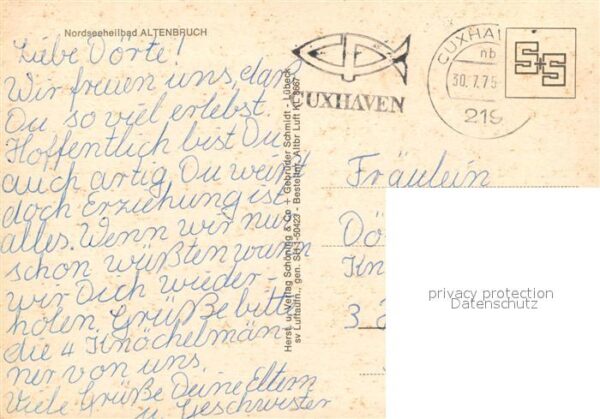 Nordseeheilbad ALTENBRUCH
Liebe Dörte!
Wir freuen uns, daß
Du so viel erlebst.
Hoffentlich bist Du
auch artig, Du weißt
doch Erziehung ist
alles. Wenn wir nur
schon wüßten wann
wir Dich wieder-
holen. Grüße bitte
die 4 Knöchelmän
ner von uns.
Viele Grüße Deine Eltern
u. Geschwister
Herst. u. Verlag Schöning & Co + Gebrüder Schmidt - Lübeck
sv Luftaufn., gen. SH 1-50423 - Bestellnr. Altbr Luft KL 8667
CUXHAVEN
CUXHA
nb
30.7.75
219
S+S
Fräulein
Dö
Kn
3
privacy protection
Datenschutz